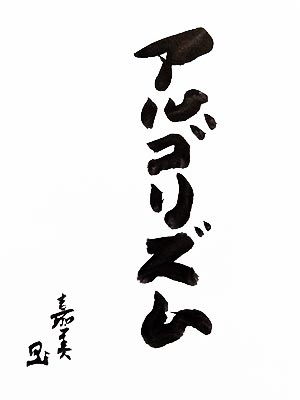 アルゴリズム
嘉美